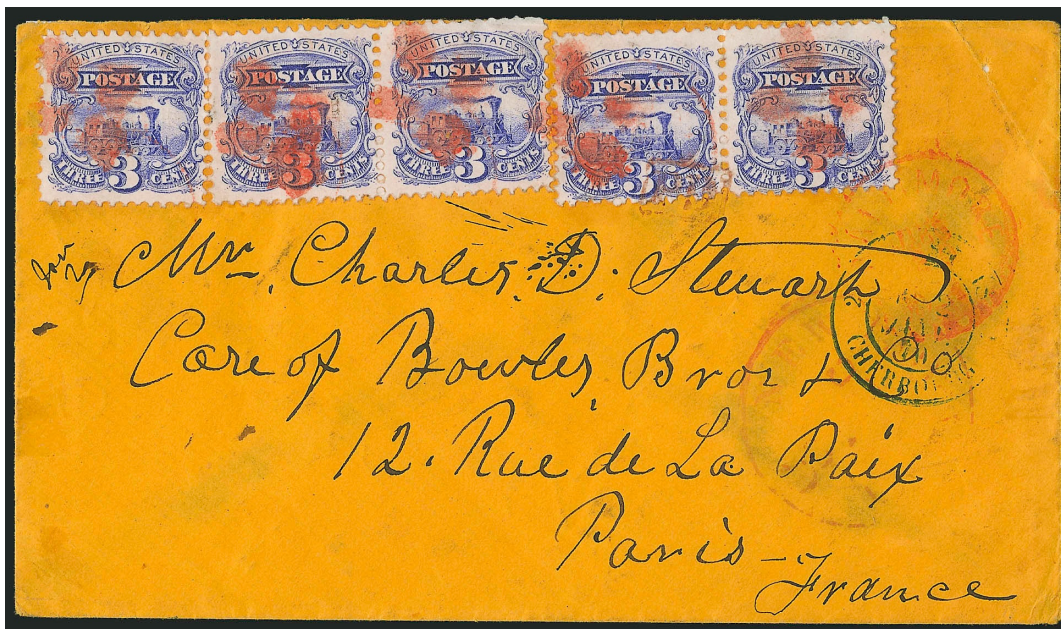 UNITED STATES POSTAGE THREE 3 CENTS
UNITED STATES POSTAGE THREE 3 CENTS
UNITED STATES POSTAGE THREE 3 CENTS
UNITED STATES POSTAGE THREE 3 CENTS
UNITED STATES POSTAGE THREE 3 CENTS
Mr. Charles. D. Stewart
Care of Bowles Bros &
12. Rue de La Paix
Paris -
France
CHERBOURG